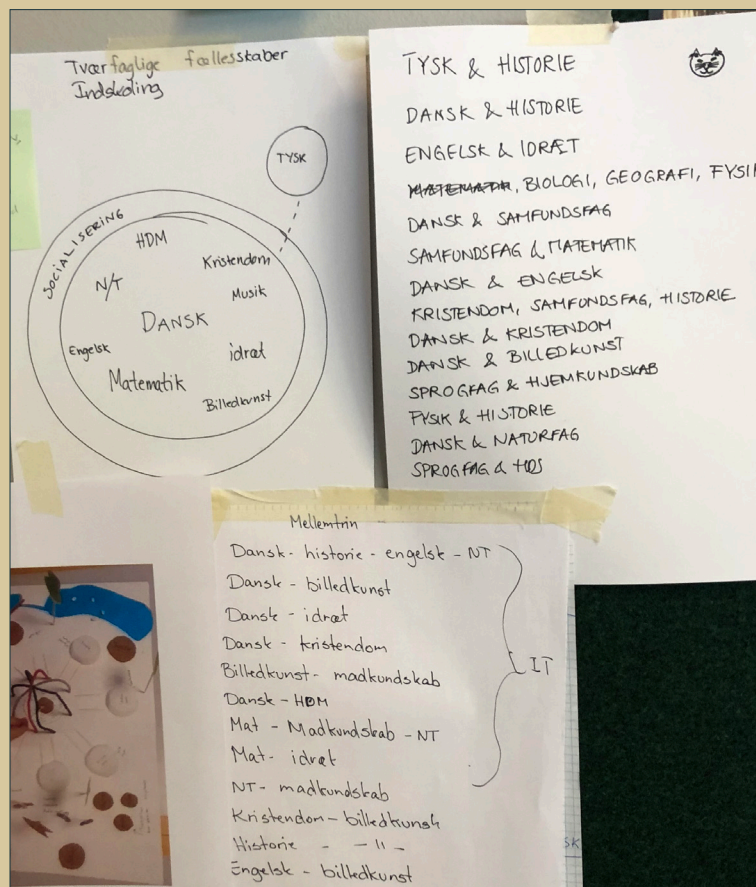 Tværfaglige fællesskaber
Indskoling
TYSK
SOCIALISERING
HDM
Kristendom
N/T
Musik
DANSK
Engelsk
idræt
Matematik
Billedkunst
TYSK & HISTORIE
DANSK & HISTORIE
ENGELSK & IDRÆT
MATEMATIK, BIOLOGI, GEOGRAFI, FYSIK
DANSK & SAMFUNDSFAG
SAMFUNDSFAG & MATEMATIK
DANSK & ENGELSK
KRISTENDOM, SAMFUNDSFAG, HISTORIE
DANSK & KRISTENDOM
DANSK & BILLEDKUNST
SPROGFAG & HJEMKUNDSKAB
FYSIK & HISTORIE
DANSK & NATURFAG
SPROGFAG & HDS
Mellemtrin
Dansk - historie - engelsk - NT
Dansk - billedkunst
Dansk - idræt
Dansk - kristendom
Billedkunst - madkundskab
IT
Dansk - HDM
Mat - Madkundskab - NT
Mat - idræt
NT - madkundskab
Kristendom - billedkunst
Historie - - 11 -
Engelsk - billedkunst
SK